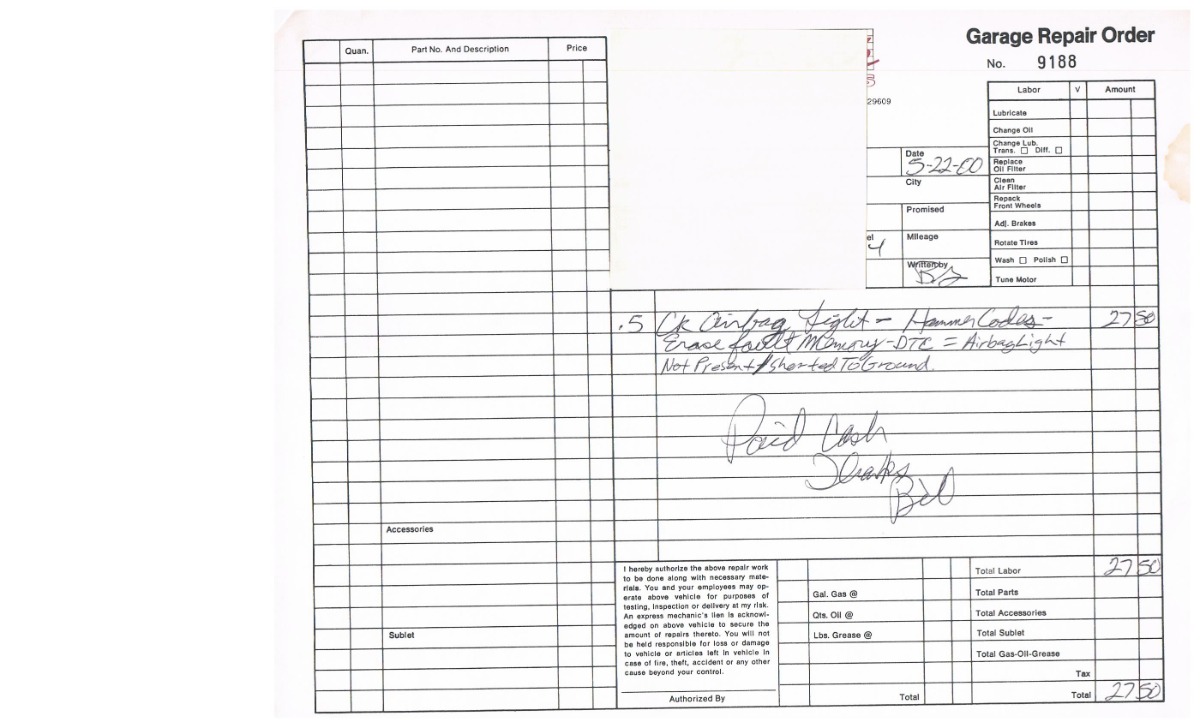 Garage Repair Order
No. 9188
Quan. Part No. And Description Price
Labor V Amount
29609
Lubricate
Change Oil
Change Lub.
Trans. ☐ Diff. ☐
Date
5-22-00
Replace
Oil Filter
City
Clean
Air Filter
Repack
Front Wheels
Promised
Adj. Brakes
el
4
Mileage
Rotate Tires
Written by
Wash ☐ Polish ☐
Tune Motor
.5 Ck Airbag Light - Hammer Codes - 27 50
Erase fault Memory - DTC = Airbag Light
Not Present / Shorted To Ground.
Paid Cash
Thanks
Bill
Accessories
Sublet
I hereby authorize the above repair work
to be done along with necessary mate-
rials. You and your employees may op-
erate above vehicle for purposes of
testing, inspection or delivery at my risk.
An express mechanic's lien is acknowl-
edged on above vehicle to secure the
amount of repairs thereto. You will not
be held responsible for loss or damage
to vehicle or articles left in vehicle in
case of fire, theft, accident or any other
cause beyond your control.
Authorized By
Gal. Gas @
Qts. Oil @
Lbs. Grease @
Total
Total Labor 27 50
Total Parts
Total Accessories
Total Sublet
Total Gas-Oil-Grease
Tax
Total 27 50